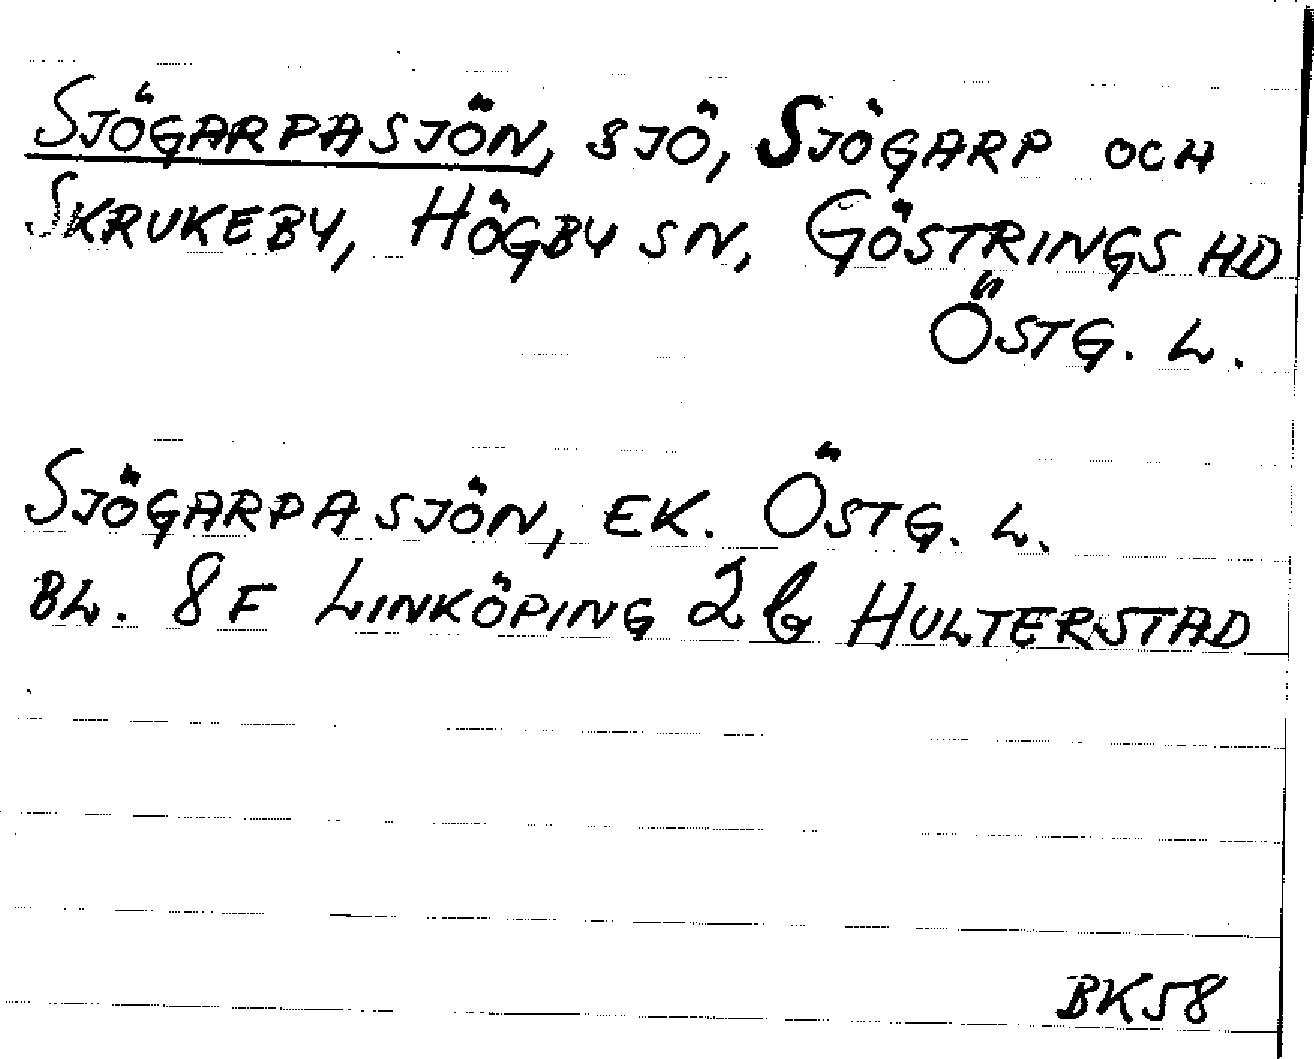 SJÖGARPASJÖN, SJÖ, SJÖGARP OCH
SKRUKEBY, HÖGBY SN, GÖSTRINGS HD
ÖSTG. L.
SJÖGARPASJÖN, EK. ÖSTG. L.
BL. 8F LINKÖPING 2b HULTERSTAD
BK58